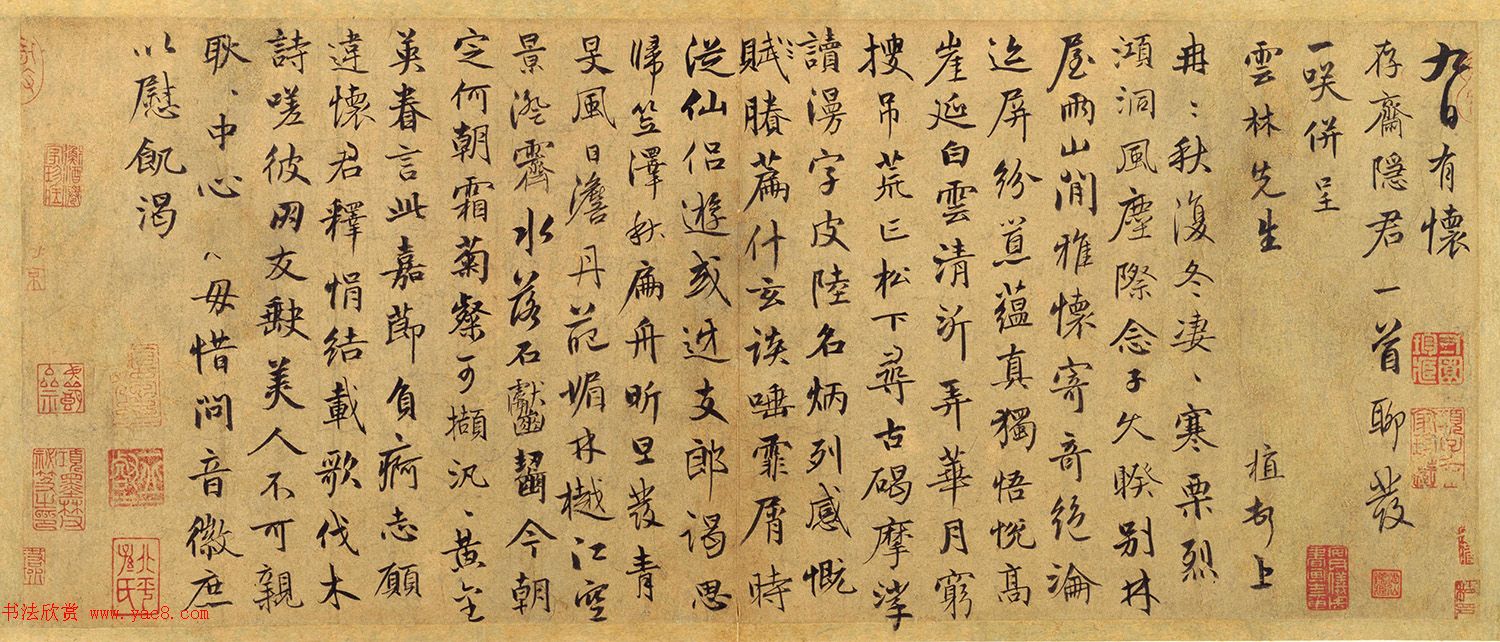 九日有懷
存齋隱君一首聊發
一笑併呈
雲林先生 植 上
冉〻秋復冬凄〻寒栗烈
澒洞風塵際念子久睽別林
屋兩山間雅懷寄奇絕淪
迄屏紛蒠蘊真獨悟悅高
崖延白雲清泝弄華月窮
搜吊荒亡松下尋古碣摩挲
讀漫字皮陸名炳列感慨
賦賸篇什玄談唾霏屑時〻
從仙侶遊或迓支郎謁思
歸笠澤秋扁舟昕旦發青
旻風日澹丹葩媚林樾江空
景澄霽水落石巘齧今朝
定何朝霜菊粲可擷汎〻黃金
英眷言此嘉節負痾志願
違懷君釋悁結載歌伐木
詩嗟彼朋友缺美人不可親
耿〻中心 毋惜問音徽庶
以慰飢渴
书法欣赏 www.yac8.com